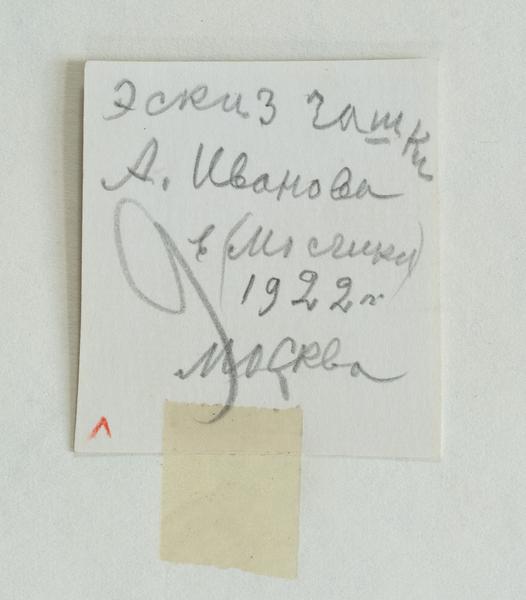 Эскиз чашки
А. Иванова
в
1922 г
Москва